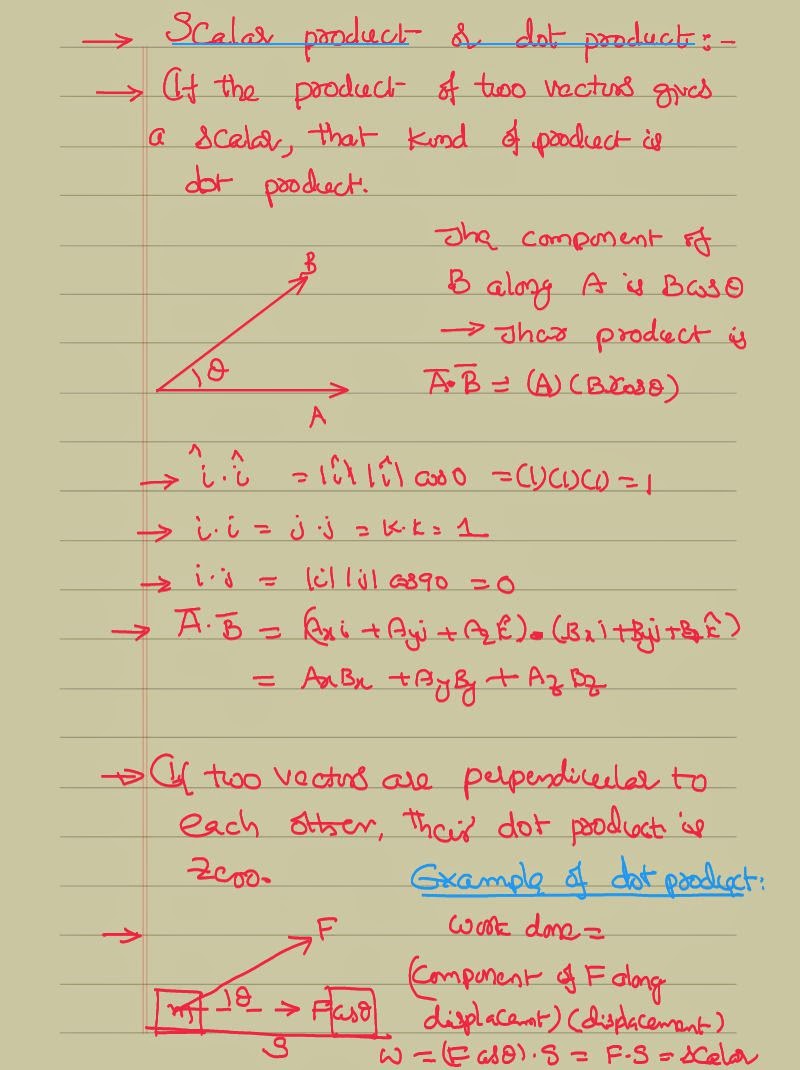 → Scalar product & dot product:-
→ If the product of two vectors gives
a scalar, that kind of product is
dot product.
B
θ
A
The component of
B along A is B cos θ
→ Their product is
A̅·B̅ = (A)(B cos θ)
→ î·î = |î| |î| cos 0 = (1)(1)(1) = 1
→ i·i = j·j = k·k = 1
→ i·j = |i| |j| cos 90 = 0
→ A̅·B̅ = (Axi + Ayj + Azk̂)·(Bxi + Byj + Bzk̂)
= AxBx + AyBy + AzBz
→ If two vectors are perpendicular to
each other, their dot product is
zero.
Example of dot product:
→
F
m θ → F cos θ
S
Work done =
(Component of F along
displacement) (displacement)
W = (F cos θ)·S = F·S = scalar